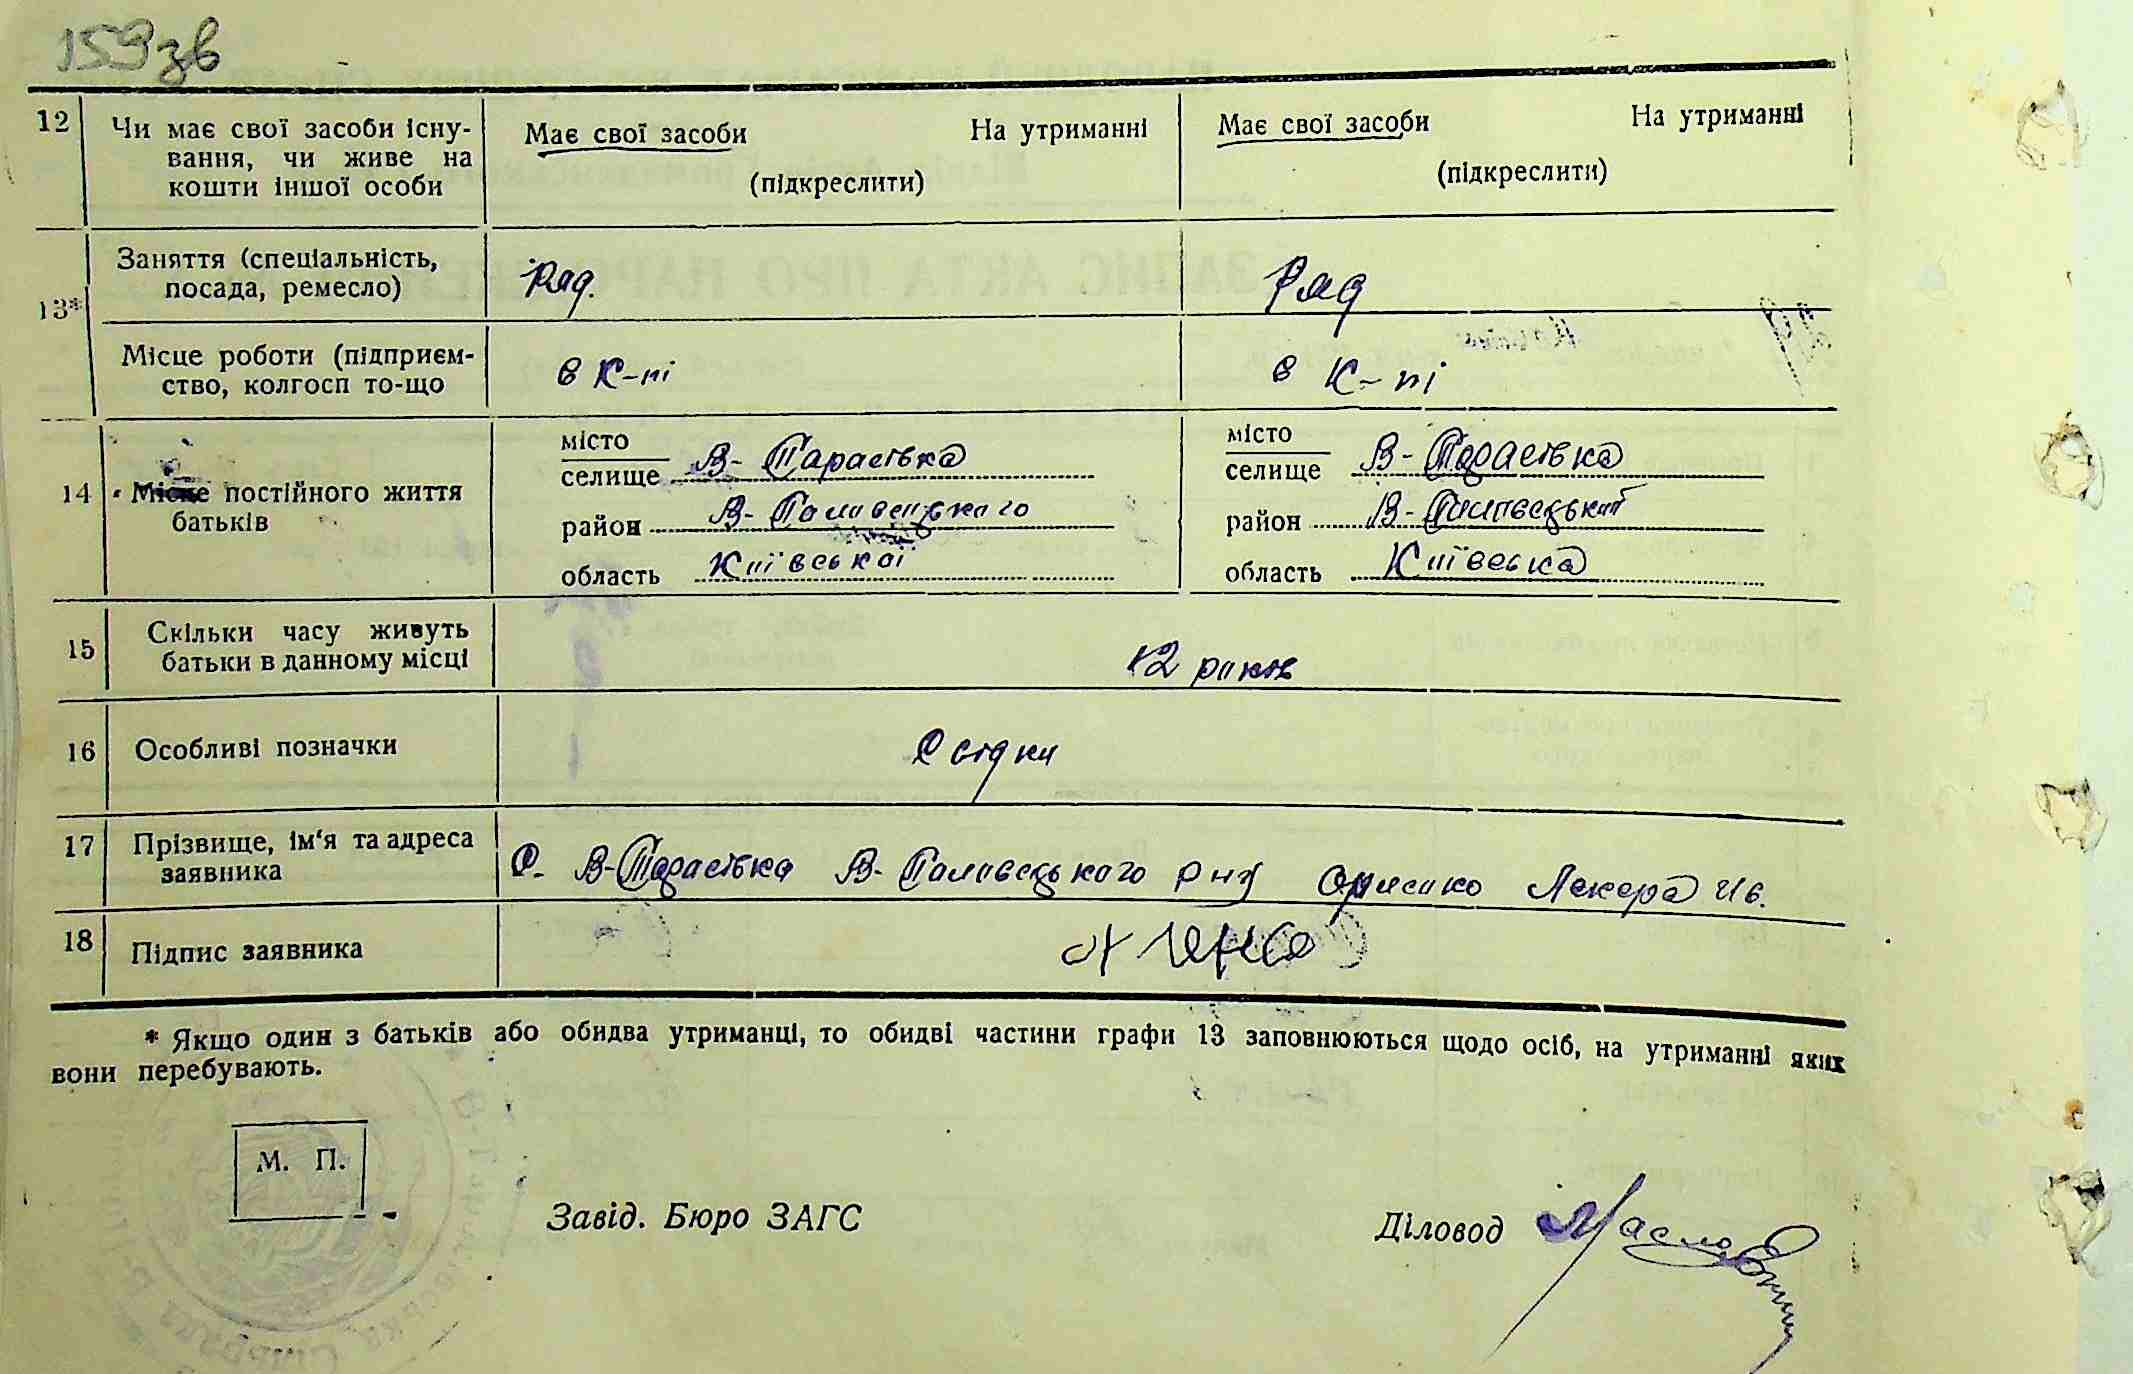 159 зв
12 Чи має свої засоби існу- Має свої засоби На утриманні Має свої засоби На утриманні
вання, чи живе на
кошти іншої особи (підкреслити) (підкреслити)
Заняття (спеціальність,
посада, ремесло) Ряд. Ряд
13*
Місце роботи (підприєм-
ство, колгосп то-що в К-пі в К-пі
місто місто
селище В-Тарасівка селище В-Тарасівка
14 Місце постійного життя
батьків
район В-Половецького район В-Половецький
область Київської область Київська
15 Скільки часу живуть
батьки в данному місці 12 років
16 Особливі позначки Свідки
17 Прізвище, ім'я та адреса
заявника С. В-Тарасівка В-Половецького р-ну Лекера Ив.
18 Підпис заявника
* Якщо один з батьків або обидва утриманці, то обидві частини графи 13 заповнюються щодо осіб, на утриманні яких
вони перебувають.
М. П.
Завід. Бюро ЗАГС Діловод